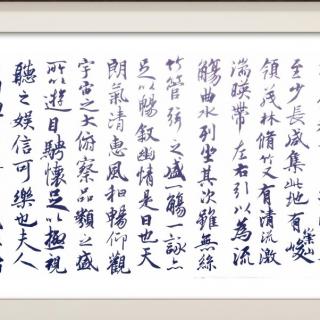 至少長咸集此地有崇山峻
領茂林脩竹又有清流激
湍暎帶左右引以為流
觴曲水列坐其次雖無絲
竹管弦之盛一觴一詠亦
足以暢叙幽情是日也天
朗氣清惠風和暢仰觀
宇宙之大俯察品類之盛
所以遊目騁懷足以極視
聽之娛信可樂也夫人